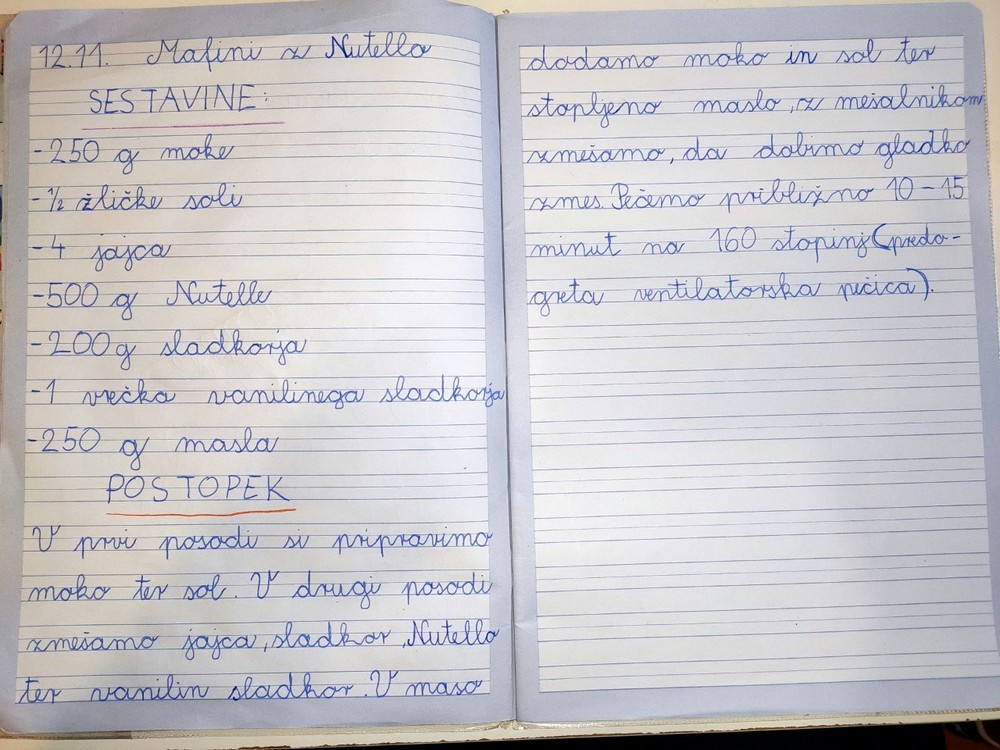 12.11. Mafini z Nutello
SESTAVINE:
-250 g moke
-1/2 žličke soli
-4 jajca
-500 g Nutelle
-200g sladkorja
-1 vrečka vanilinega sladkorja
-250 g masla
POSTOPEK
V prvi posodi si pripravimo
moko ter sol. V drugi posodi
zmešamo jajca, sladkor, Nutello
ter vanilin sladkor. V maso
dodamo moko in sol ter
stopljeno maslo, z mešalnikom
zmešamo, da dobimo gladko
zmes. Pečemo približno 10-15
minut na 160 stopinj (predo-
greta ventilatorska pečica).